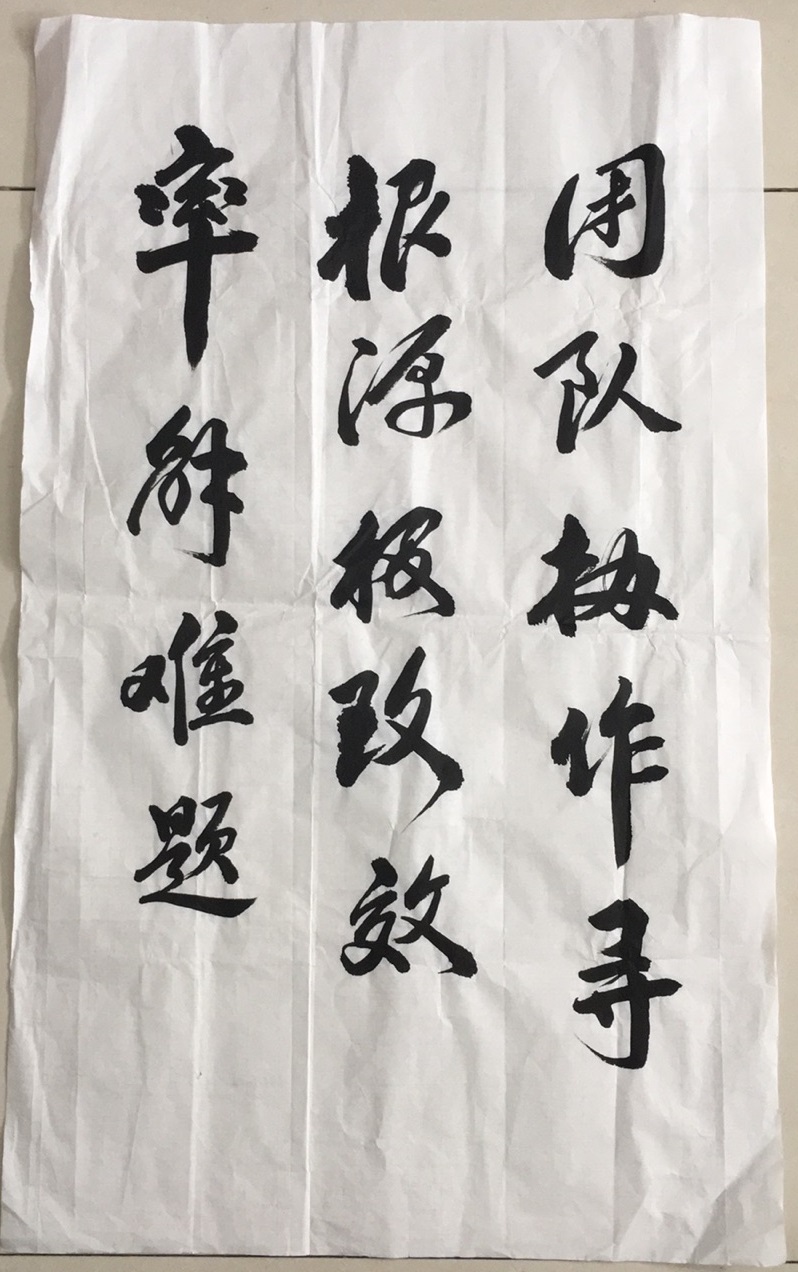 团队协作寻
根源极致效
率解难题